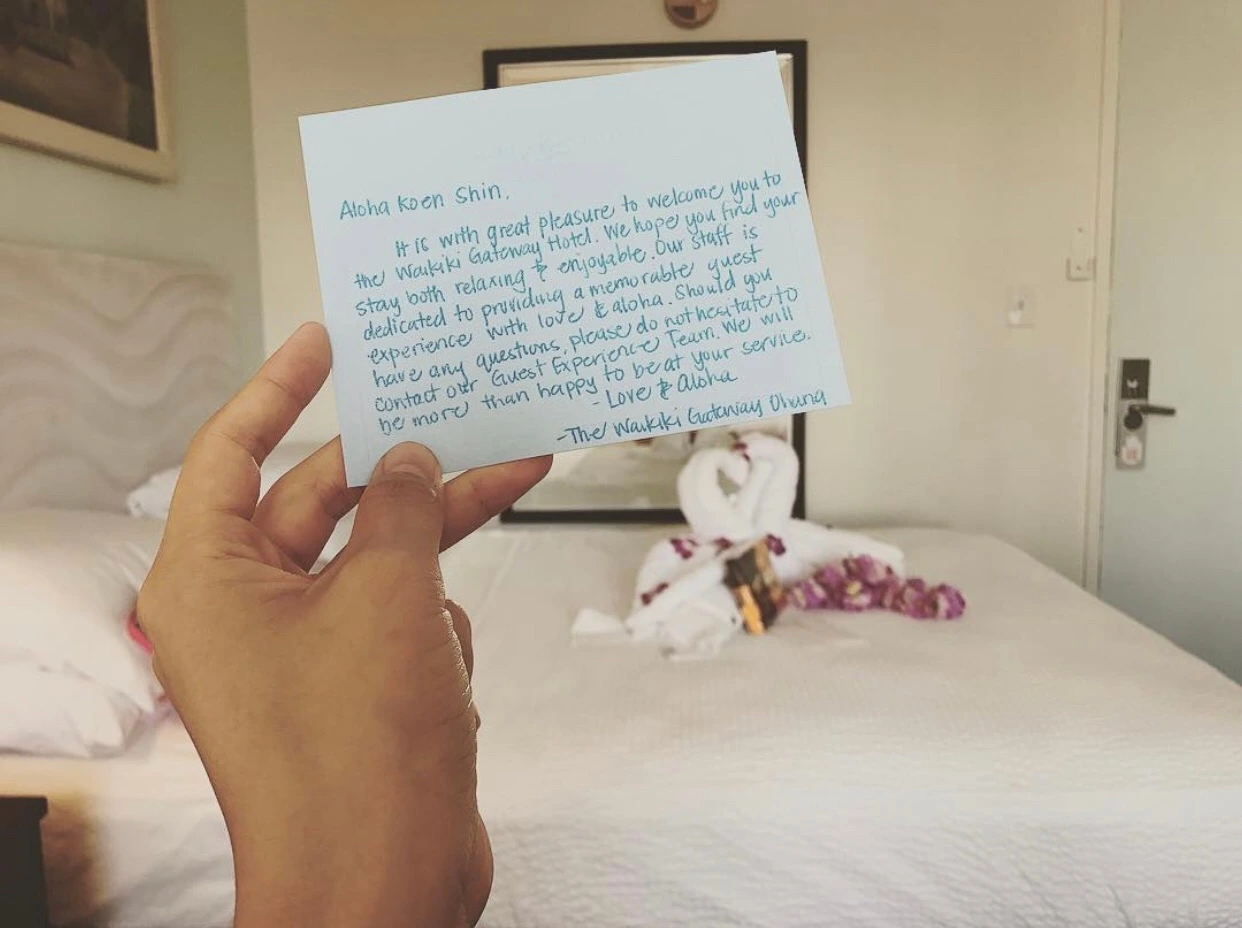 Aloha Koen Shin,
It is with great pleasure to welcome you to
the Waikiki Gateway Hotel. We hope you find your
stay both relaxing & enjoyable. Our staff is
dedicated to providing a memorable guest
experience with love & aloha. Should you
have any questions, please do not hesitate to
contact our Guest Experience Team. We will
be more than happy to be at your service.
- Love & Aloha
- The Waikiki Gateway Ohana